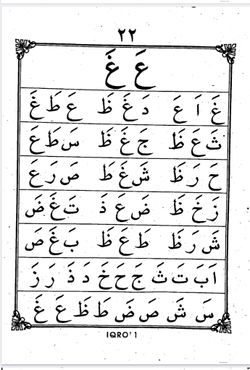 ٢٢
عَ غَ
غَ اَ عَ دَ غَ ظَ عَ طَ غَ
ثَ عَ ظَ جَ غَ ظَ سَ طَ عَ
حَ رَ ظَ شَ غَ طَ صَ رَ عَ
زَ خَ ظَ ضَ عَ ذَ تَ غَ ضَ
شَ رَ ظَ طَ عَ ظَ بَ غَ صَ
اَ بَ تَ ثَ جَ حَ خَ دَ ذَ رَ زَ
سَ شَ صَ ضَ طَ ظَ عَ غَ
IQRO' 1